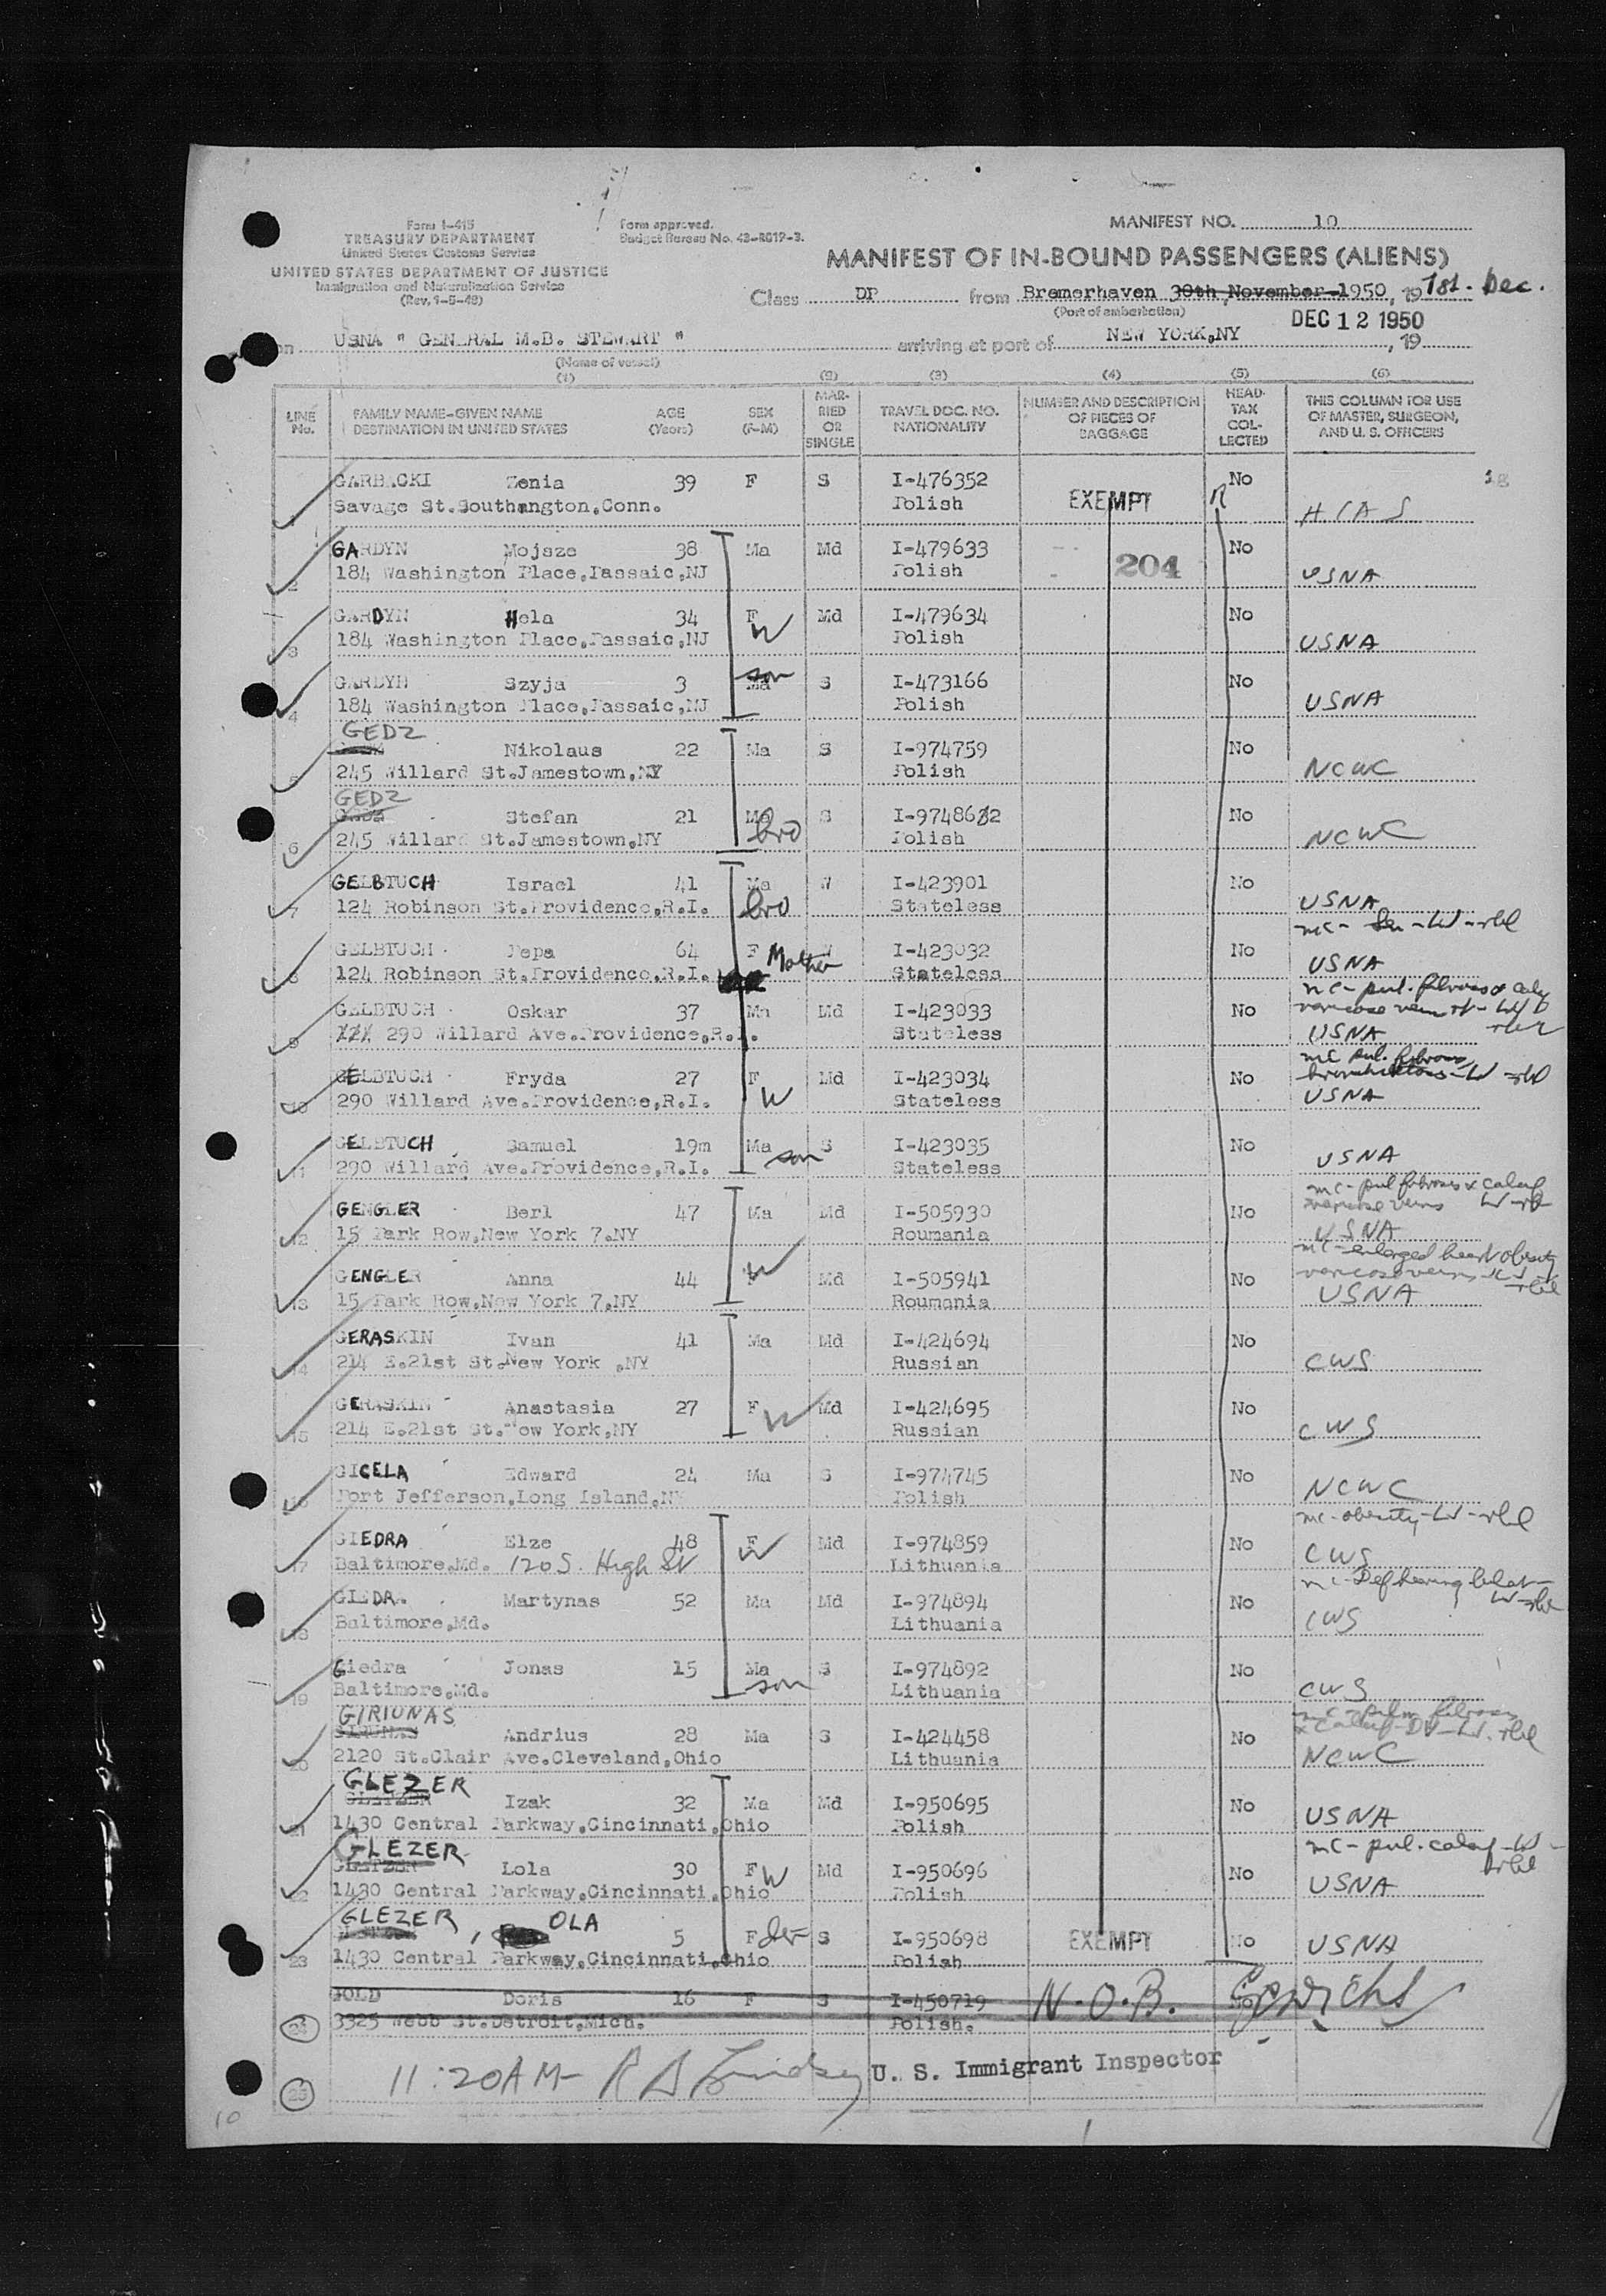 Form I-415
TREASURY DEPARTMENT
United States Customs Service
UNITED STATES DEPARTMENT OF JUSTICE
Immigration and Naturalization Service
(Rev. 1-5-48)
Form approved.
Budget Bureau No. 43-R019-3.
MANIFEST NO. 10
MANIFEST OF IN-BOUND PASSENGERS (ALIENS)
Class DP from Bremerhaven 30th November 1950, 19 1st. Dec.
(Port of embarkation)
DEC 12 1950
on USNA " GENERAL M.B. STEWART " arriving at port of NEW YORK,NY , 19
(Name of vessel)
(1) (2) (3) (4) (5) (6)
LINE No. FAMILY NAME-GIVEN NAME DESTINATION IN UNITED STATES AGE (Years) SEX (F-M) MARRIED OR SINGLE TRAVEL DOC. NO. NATIONALITY NUMBER AND DESCRIPTION OF PIECES OF BAGGAGE HEAD TAX COLLECTED THIS COLUMN FOR USE OF MASTER, SURGEON, AND U. S. OFFICERS
GARBACKI Zenia 39 F S I-476352 No
1 Savage St.Southangton,Conn. Polish EXEMPT HIAS
GARDYN Mojsze 38 Ma Md I-479633 No
2 184 Washington Place,Passaic,NJ Polish 204 USNA
GARDYN Hela 34 F W Md I-479634 No
3 184 Washington Place,Passaic,NJ Polish USNA
GARDYN Szyja 3 Ma son S I-473166 No
4 184 Washington Place,Passaic,NJ Polish USNA
GEDZ
Nikolaus 22 Ma S I-974759 No
5 245 Willard St.Jamestown,NY Polish NCWC
GEDZ
Stefan 21 Ma bro S I-9748682 No
6 245 Willard St.Jamestown,NY Polish NCWC
GELBTUCH Israel 41 Ma W I-423901 No
7 124 Robinson St.Providence,R.I. bro Stateless USNA
GELBTUCH Pepa 64 F Mother W I-423032 No
8 124 Robinson St.Providence,R.I. Stateless USNA
GELBTUCH Oskar 37 Ma Md I-423033 No
9 290 Willard Ave.Providence,R.I. Stateless USNA
GELBTUCH Fryda 27 F W Md I-423034 No
10 290 Willard Ave.Providence,R.I. Stateless USNA
GELBTUCH Samuel 19m Ma son S I-423035 No
11 290 Willard Ave.Providence,R.I. Stateless USNA
GENGLER Berl 47 Ma Md I-505930 No
12 15 Park Row,New York 7.NY Roumania USNA
GENGLER Anna 44 F W Md I-505941 No
13 15 Park Row,New York 7.NY Roumania USNA
GERASKIN Ivan 41 Ma Md I-424694 No
14 214 E.21st St.New York ,NY Russian CWS
GERASKIN Anastasia 27 F W Md I-424695 No
15 214 E.21st St.New York,NY Russian CWS
GICELA Edward 24 Ma S I-974745 No
16 Port Jefferson,Long Island,NY Polish NCWC
mc-obesity
GIEDRA Elze 48 F W Md I-974859 No
17 Baltimore,Md. 120 S. High St Lithuania CWS
GIEDRA Martynas 52 Ma Md I-974894 No
18 Baltimore,Md. Lithuania CWS
Giedra Jonas 15 Ma son S I-974892 No
19 Baltimore,Md. Lithuania CWS
GIRIUNAS
GIRUNAS Andrius 28 Ma S I-424458 No
20 2120 St.Clair Ave.Cleveland,Ohio Lithuania NCWC
GLEZER
GLETZER Izak 32 Ma Md I-950695 No
21 1430 Central Parkway,Cincinnati,Ohio Polish USNA
GLEZER
GLETZER Lola 30 F W Md I-950696 No
22 1430 Central Parkway,Cincinnati,Ohio Polish USNA
GLEZER, OLA 5 F S I-950698 EXEMPT No USNA
23 1430 Central Parkway,Cincinnati,Ohio Polish
GOLD Doris 16 F S I-450719 N.O.B. No
24 3325 Webb St.Detroit,Mich. Polish.
25 11:20AM- R A Lindsey U. S. Immigrant Inspector
10